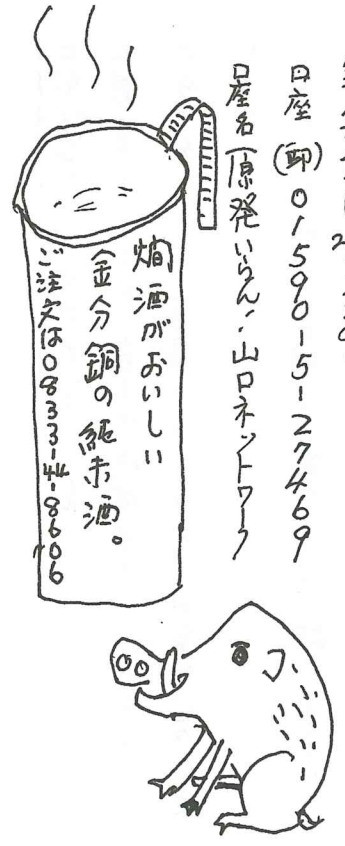 口座(郵)01590-5-27469
口座名「原発いらん!山口ネットワーク」
燗酒がおいしい
金分銅の純米酒。
ご注文は0833-44-8606